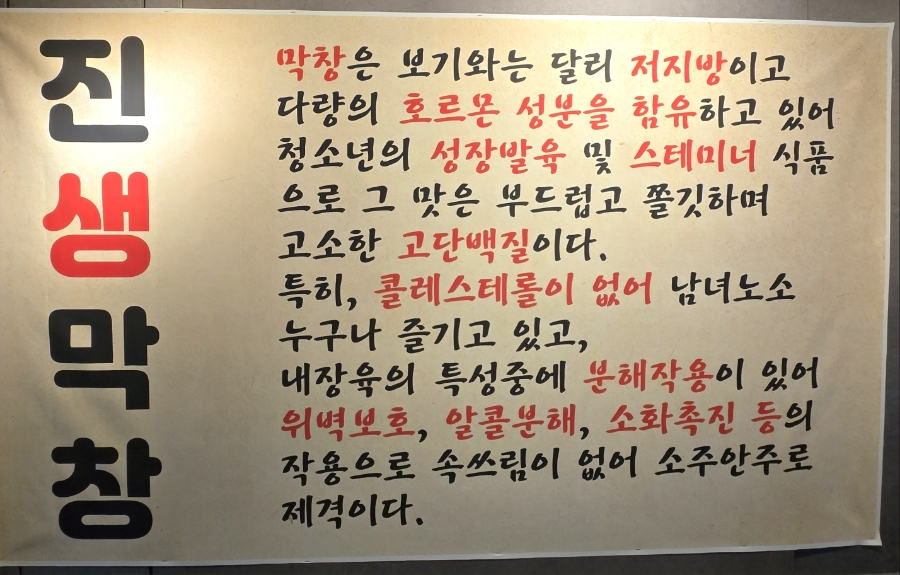 진
생
막
창
막창은 보기와는 달리 저지방이고
다량의 호르몬 성분을 함유하고 있어
청소년의 성장발육 및 스테미너 식품
으로 그 맛은 부드럽고 쫄깃하며
고소한 고단백질이다.
특히, 콜레스테롤이 없어 남녀노소
누구나 즐기고 있고,
내장육의 특성중에 분해작용이 있어
위벽보호, 알콜분해, 소화촉진 등의
작용으로 속쓰림이 없어 소주안주로
제격이다.